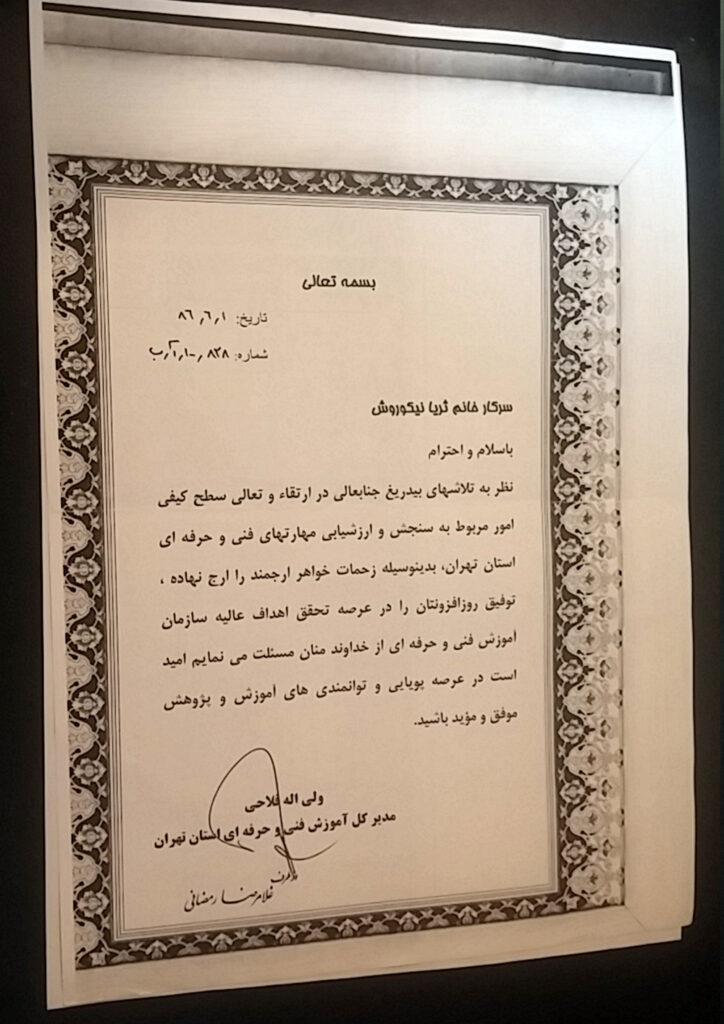 بسمه تعالی
تاریخ: ۸۶٫۶٫۱
شماره: ۸۲۸
سرکار خانم ثریا نیکوروش
باسلام و احترام
نظر به تلاشهای بیدریغ جنابعالی در ارتقاء و تعالی سطح کیفی
امور مربوط به سنجش و ارزشیابی مهارتهای فنی و حرفه ای
استان تهران، بدینوسیله زحمات خواهر ارجمند را ارج نهاده ،
توفیق روزافزونتان را در عرصه تحقق اهداف عالیه سازمان
آموزش فنی و حرفه ای از خداوند منان مسئلت می نمایم امید
است در عرصه پویایی و توانمندی های آموزش و پژوهش
موفق و مؤید باشید.
ولی اله فلاحی
مدیر کل آموزش فنی و حرفه ای استان تهران
از طرف
غلامرضا رمضانی